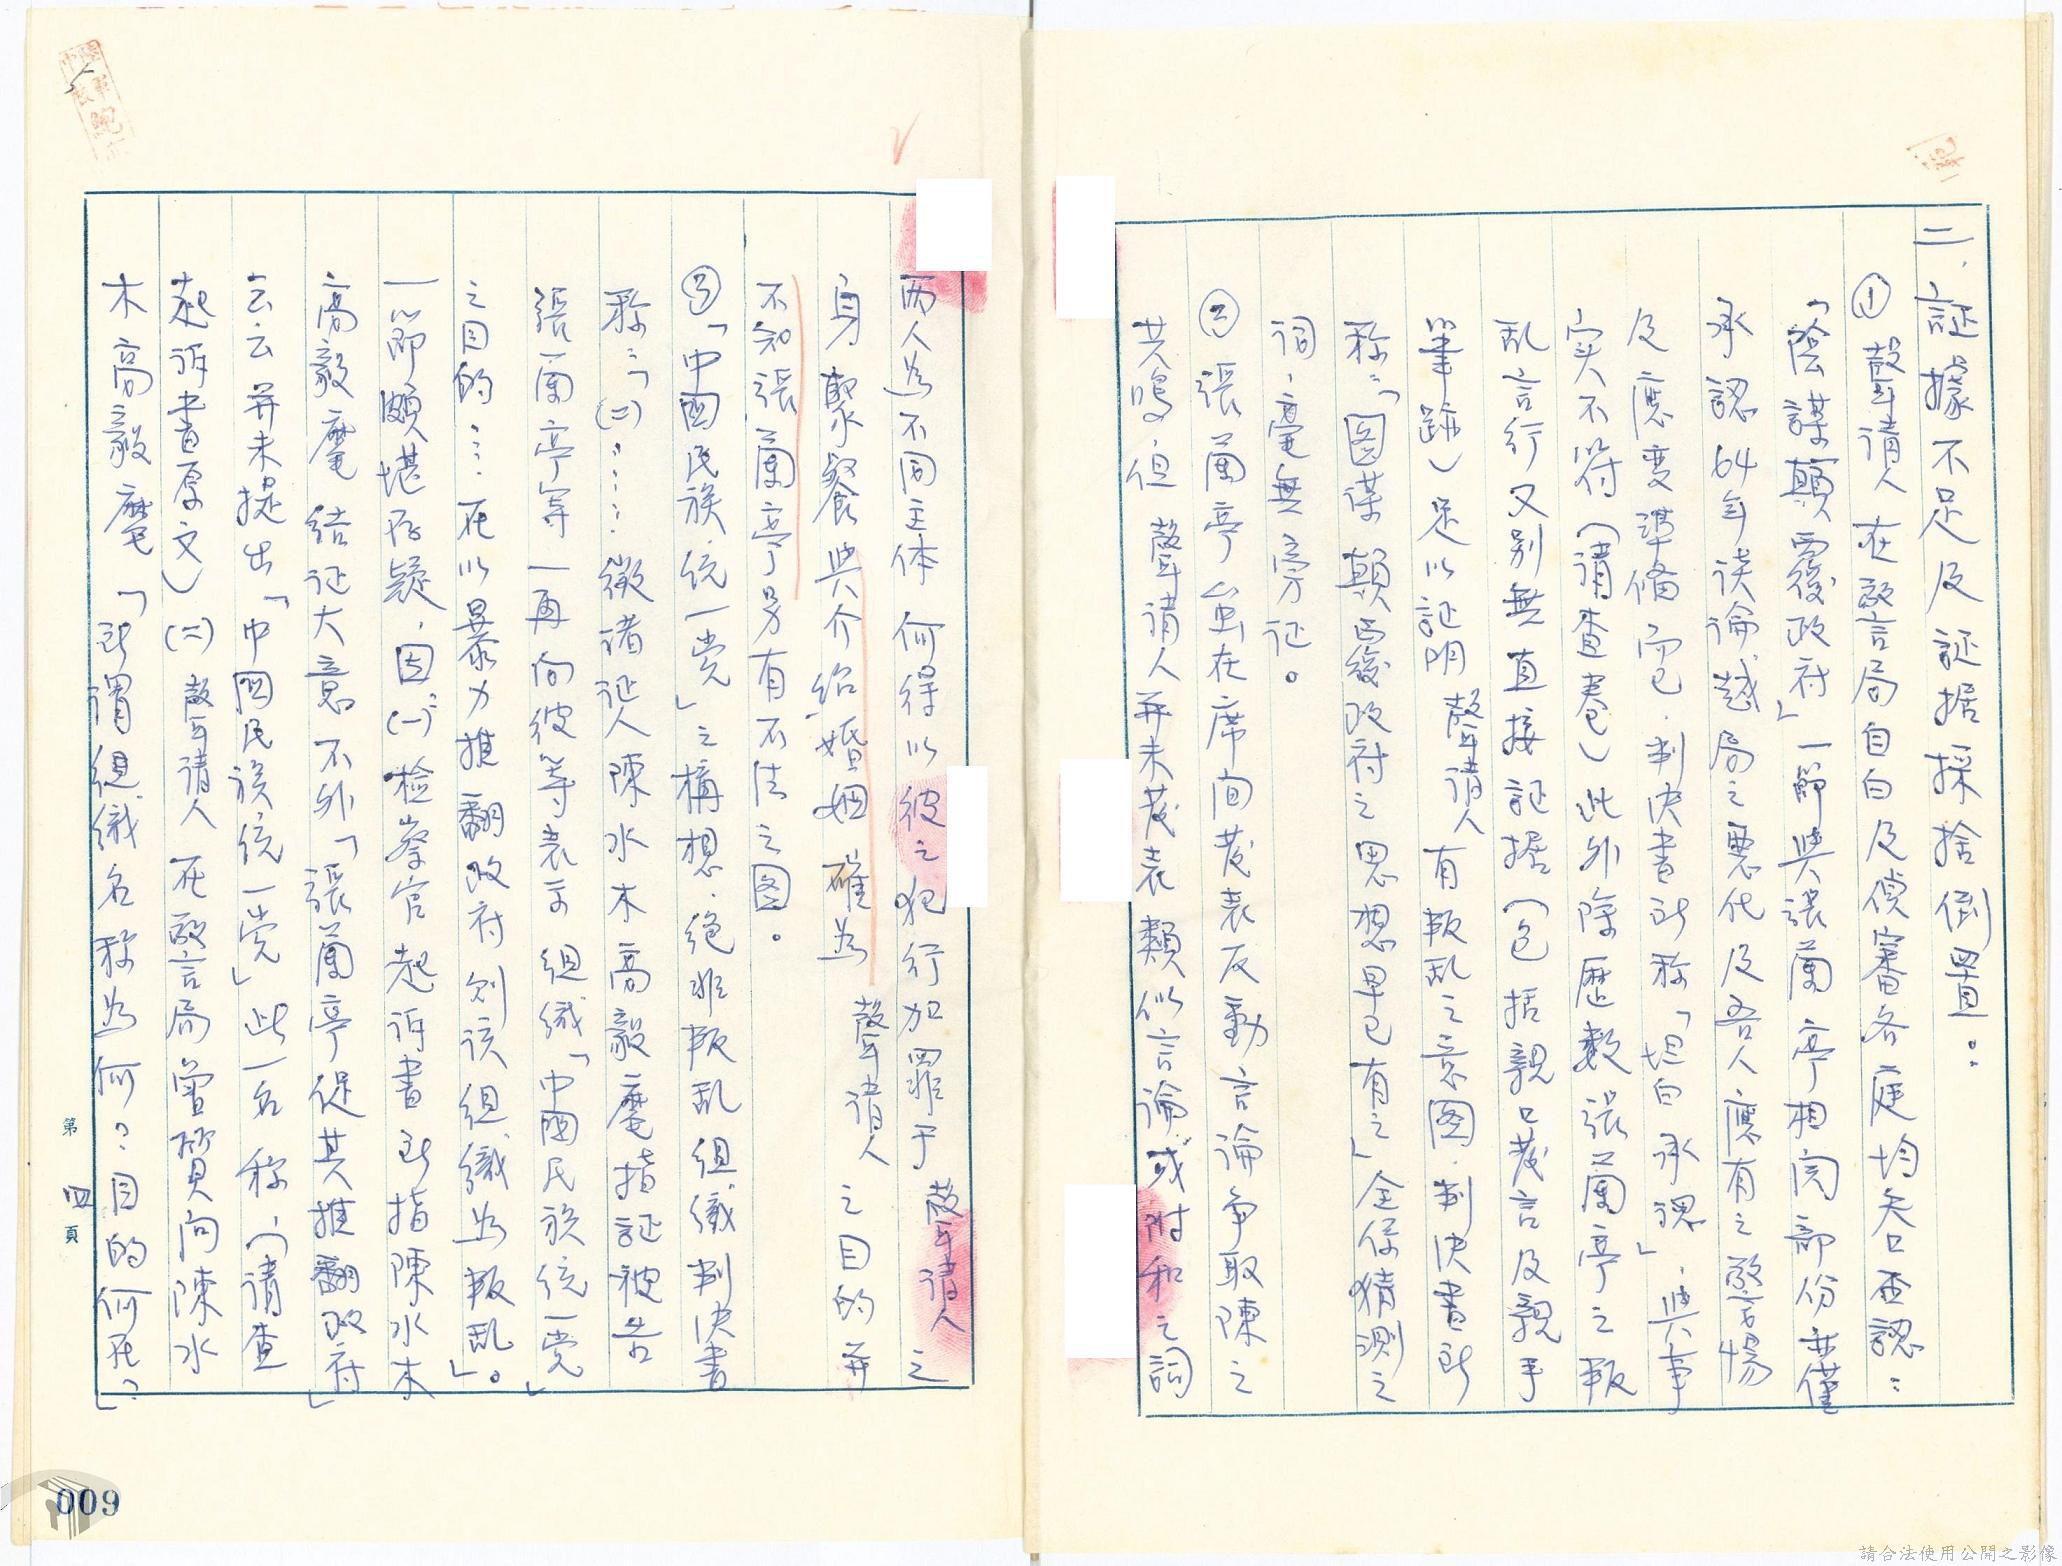 二、証據不足及証据採捨倒置：
①聲請人在警局自白及偵審各庭均矢口否認：
「陰謀顛覆政府」一節與張蘭亭相関部份並僅
承認64年談論越局之悪化及吾人應有之警惕
及應変準備而已．判決書所称「坦白承認」．與事
实不符（請查卷）此外除歷数張蘭亭之叛
乱言行又别無直接証据（包括親口发言及親手
筆跡）足以証明聲請人有叛乱之意圖．判決書所
称：「图谋顛覆政府之思想早已有之」全係猜測之
词，毫無旁证。
②張蘭亭虽在席间发表反動言論争取陳之
共鳴，但聲請人并未发表類似言論或附和之詞
两人為不同主体何得以彼之犯行加罪于聲請人之
身聚餐與介绍婚姻確為聲請人之目的并
不知張蘭亭另有不法之图。
③「中國民族統一党」之構想．絕非叛乱組織判決書
称：「（二）……徵诸证人陳水木高毅麾指証被告
張蘭亭等一再向彼等表示組織「中國民族統一党」
之目的……在以暴力推翻政府则该組織為叛乱」。
一節頗堪存疑，因：（一）检察官起诉書所指陳水木
高毅麾结证大意不外「張蘭亭促其推翻政府」
云云并未提出「中國民族統一党」此一名称，（請查
起诉書原文）（二）聲請人在警局曾質问陳水
木高毅麾「所谓組織名称為何？目的何在？」
第四頁
009
請合法使用公開之影像